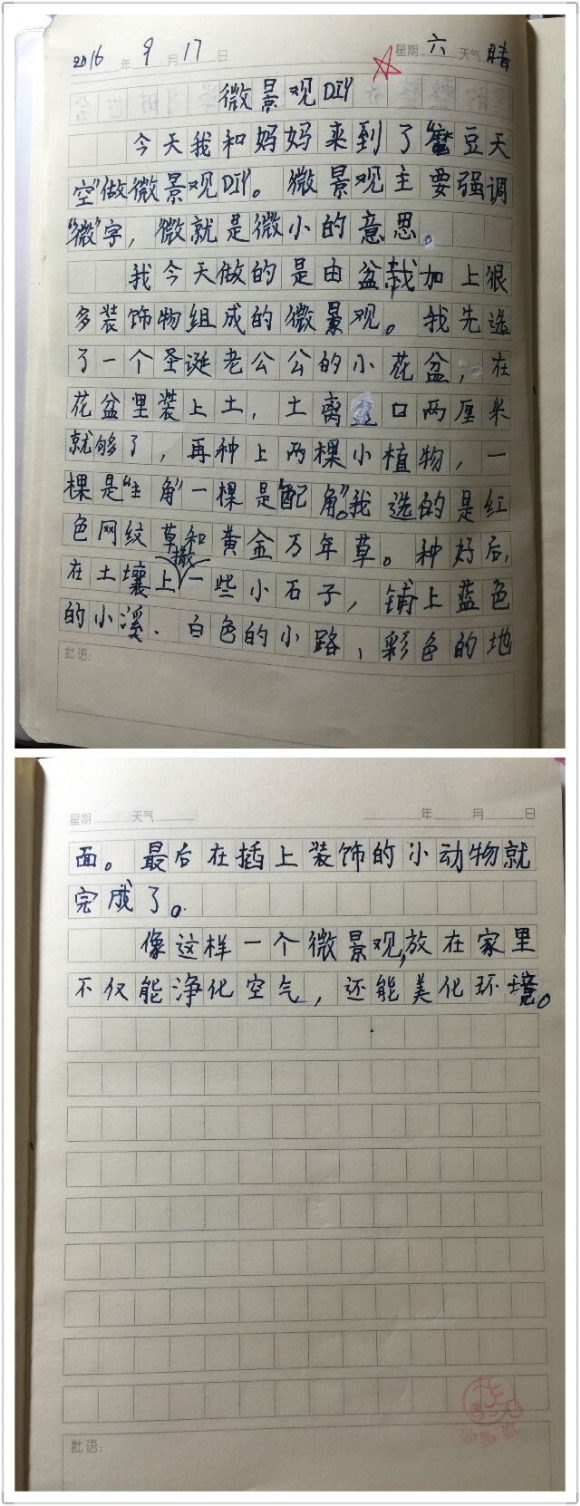 2016年9月17日 星期六 天气晴
微景观DIY
今天我和妈妈来到了“蚕豆天
空”做微景观DIY。微景观主要强调
“微”字，微就是微小的意思。
我今天做的是由盆栽加上很
多装饰物组成的微景观。我先选
了一个圣诞老公公的小花盆，在
花盆里装上土，土离盆口两厘米
就够了，再种上两棵小植物，一
棵是“主角”一棵是“配角”。我选的是红
色网纹草和黄金万年草。种好后，
在土壤上撒一些小石子，铺上蓝色
的小溪、白色的小路，彩色的地
批语：
星期 天气 年 月 日
面。最后在插上装饰的小动物就
完成了。
像这样一个微景观，放在家里
不仅能净化空气，还能美化环境。
批语：